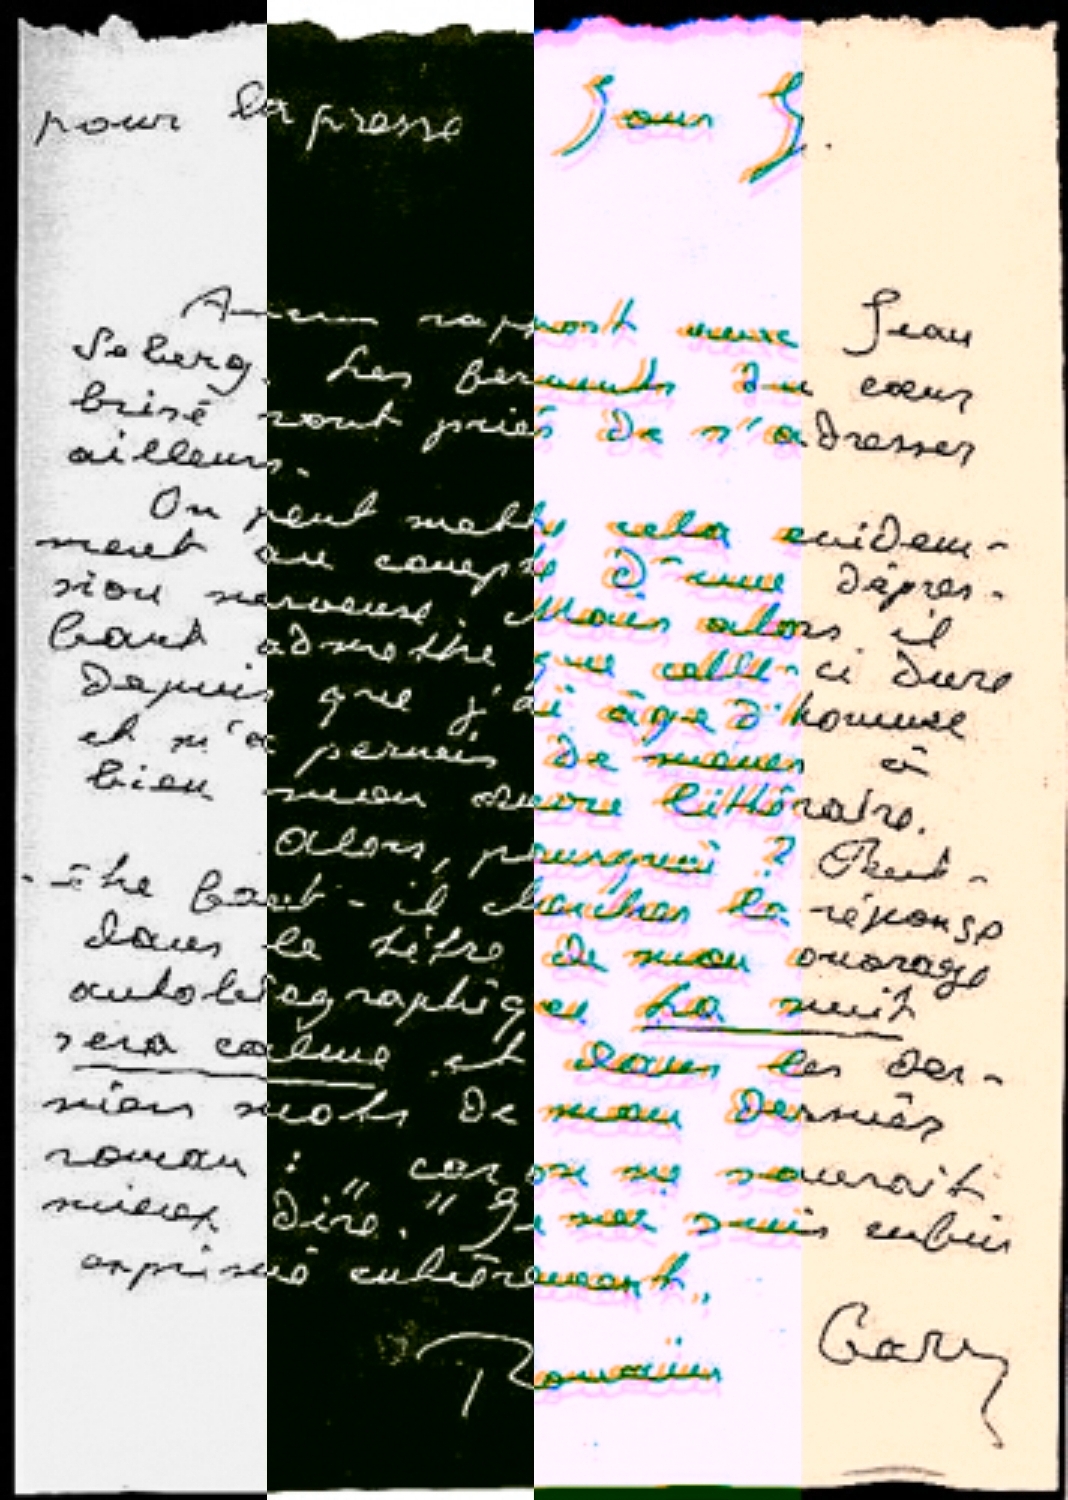 pour la presse Jour J.
Aucun rapport avec Jean
Seberg. Les fervents du cœur
brisé sont priés de s'adresser
ailleurs.
On peut mettre cela evidem-
ment au compte d'une dépres-
sion nerveuse. Mais alors il
faut admettre que celle-ci dure
depuis que j'ai âge d'homme
et m'a permis de mener à
bien mon œuvre littéraire.
Alors, pourquoi ? Peut-
-être faut-il chercher la réponse
dans le titre de mon ouvrage
autobiographique La nuit
sera calme et dans les der-
niers mots de mon dernier
roman : " car on ne saurait
mieux dire. " Je me suis enfin
exprimé entièrement.
Romain Gary